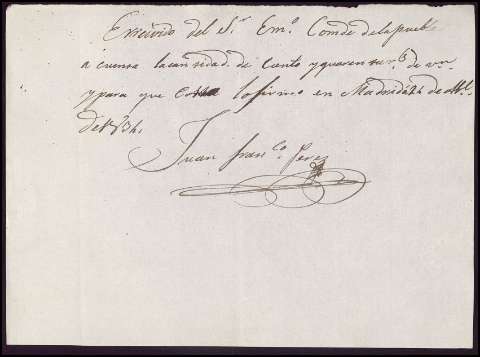 Erreciuido del Sr. Emo. Comde de la puebla
a cuenta la cantidad de Ciento y quarenta rs. de vn.
y para que Coste lo firmo en Madrid a 24 de
de 1834.
Juan franco. Perez